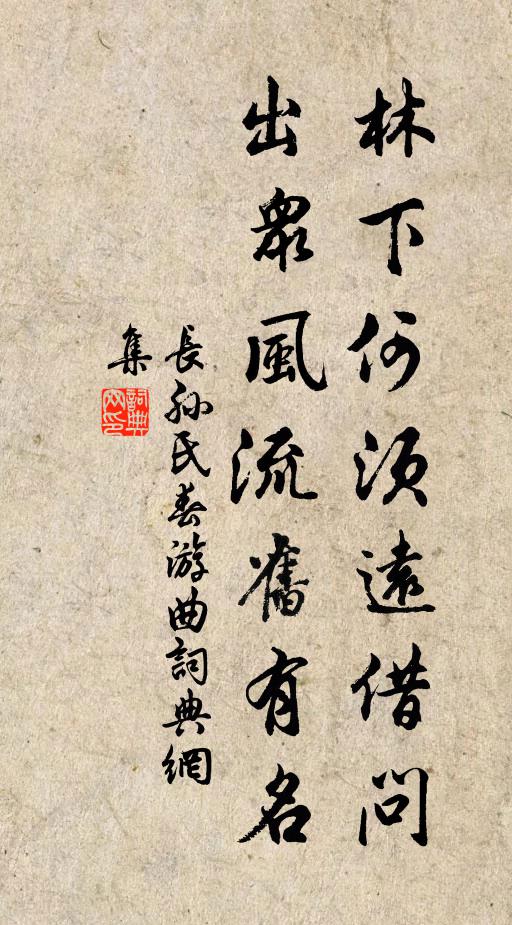 林下何須遠借問
出眾風流舊有名
長孫氏春游曲詞典網
集
詞典網印